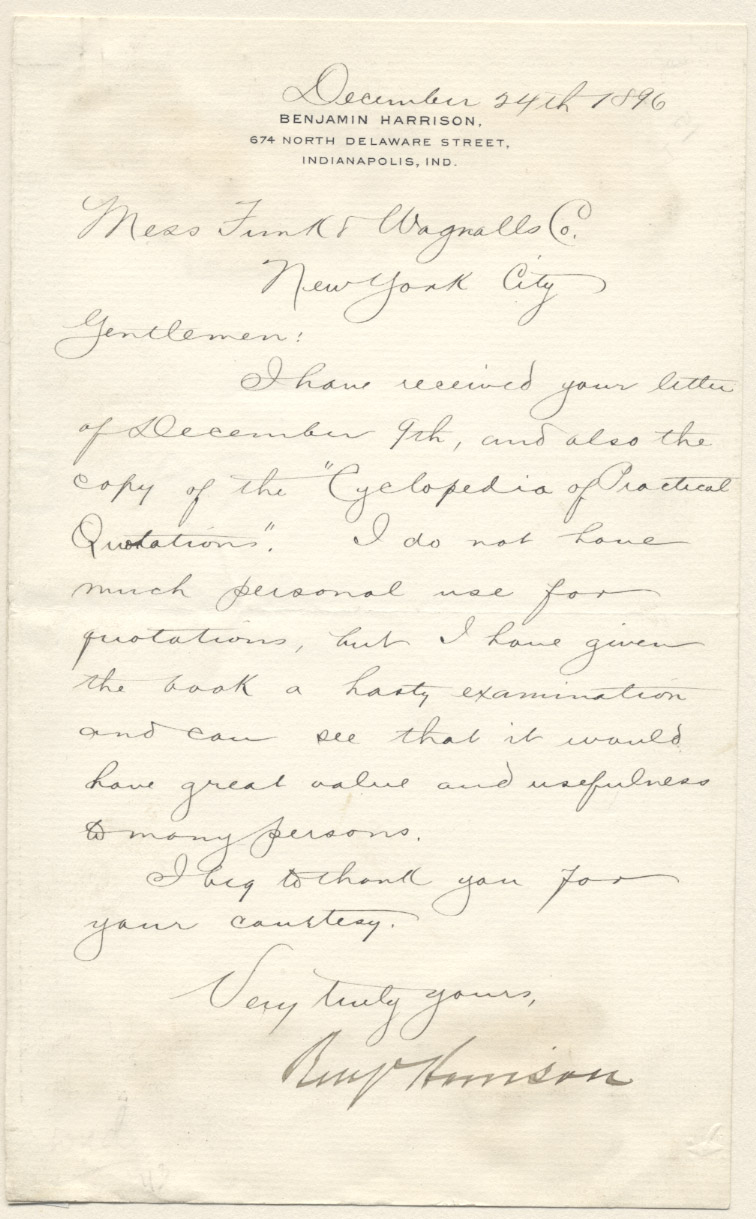 December 24th 1896
BENJAMIN HARRISON,
674 NORTH DELAWARE STREET,
INDIANAPOLIS, IND.
Mess Funk & Wagnalls Co.
New York City
Gentlemen:
I have received your letter
of December 9th, and also the
copy of the "Cyclopedia of Practical
Quotations". I do not have
much personal use for
quotations, but I have given
the book a hasty examination
and can see that it would
have great value and usefulness
to many persons.
I beg to thank you for
your courtesy.
Very truly yours,
Benj Harrison